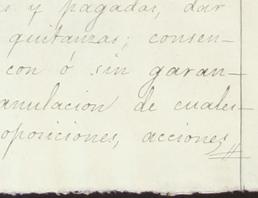 s y pagadas, dar
quitanzas; consen-
con ó sin garan-
anulacion de cuales-
oposiciones, acciones